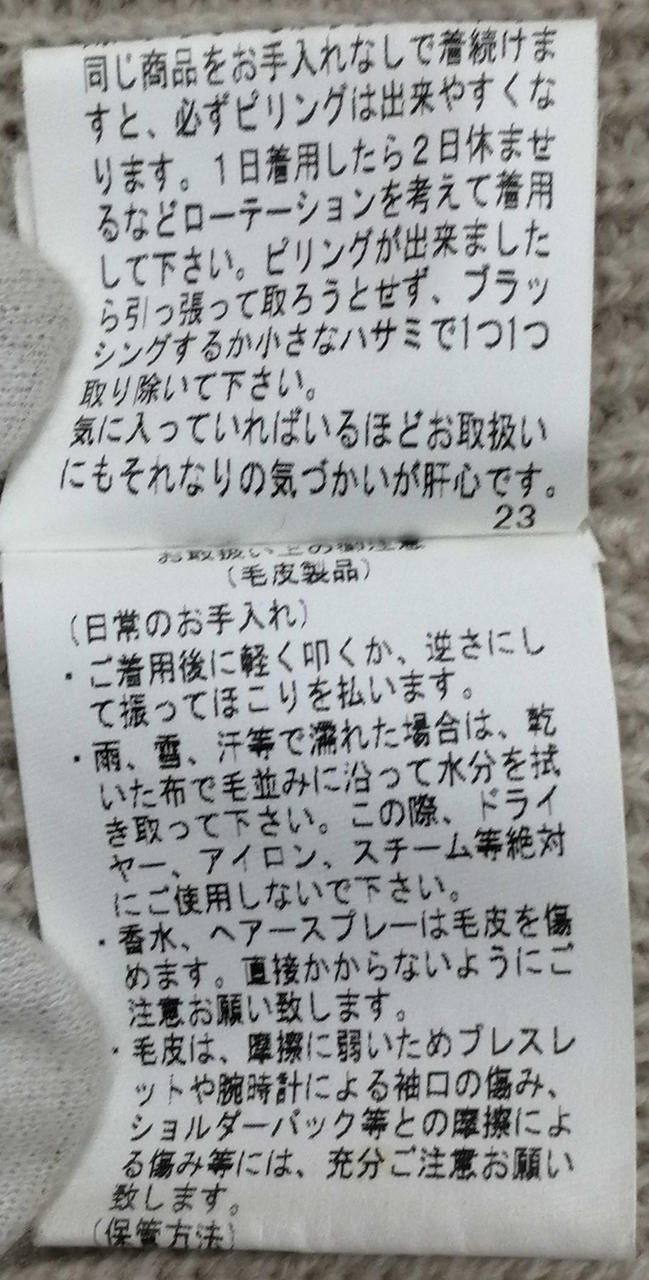 同じ商品をお手入れなしで着続けま
すと、必ずピリングは出来やすくな
ります。1日着用したら2日休ませ
るなどローテーションを考えて着用
して下さい。ピリングが出来ました
ら引っ張って取ろうとせず、ブラッ
シングするか小さなハサミで1つ1つ
取り除いて下さい。
気に入っていればいるほどお取扱い
にもそれなりの気づかいが肝心です。
23
お取扱い上の御注意
(毛皮製品)
(日常のお手入れ)
・ご着用後に軽く叩くか、逆さにし
て振ってほこりを払います。
・雨、雪、汗等で濡れた場合は、乾
いた布で毛並みに沿って水分を拭
き取って下さい。この際、ドライ
ヤー、アイロン、スチーム等絶対
にご使用しないで下さい。
・香水、ヘアースプレーは毛皮を傷
めます。直接かからないようにご
注意お願い致します。
・毛皮は、摩擦に弱いためブレスレ
ットや腕時計による袖口の傷み、
ショルダーバック等との摩擦によ
る傷み等には、充分ご注意お願い
致します。
(保管方法)